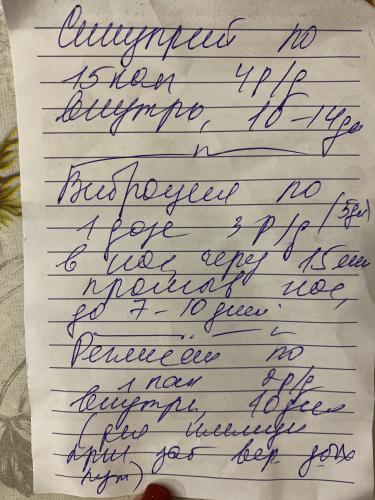 Синупрет по
15 кап 4 р/д
внутрь, 10-14 дн
Виброцил по
1 дозе 3 р/д (5 дн)
в нос, через 15 мин
промыв нос,
до 7-10 дней.
по
1 кап 2 р/д
внутрь, 10 дней
(для
хрон заб вер дых
пут)